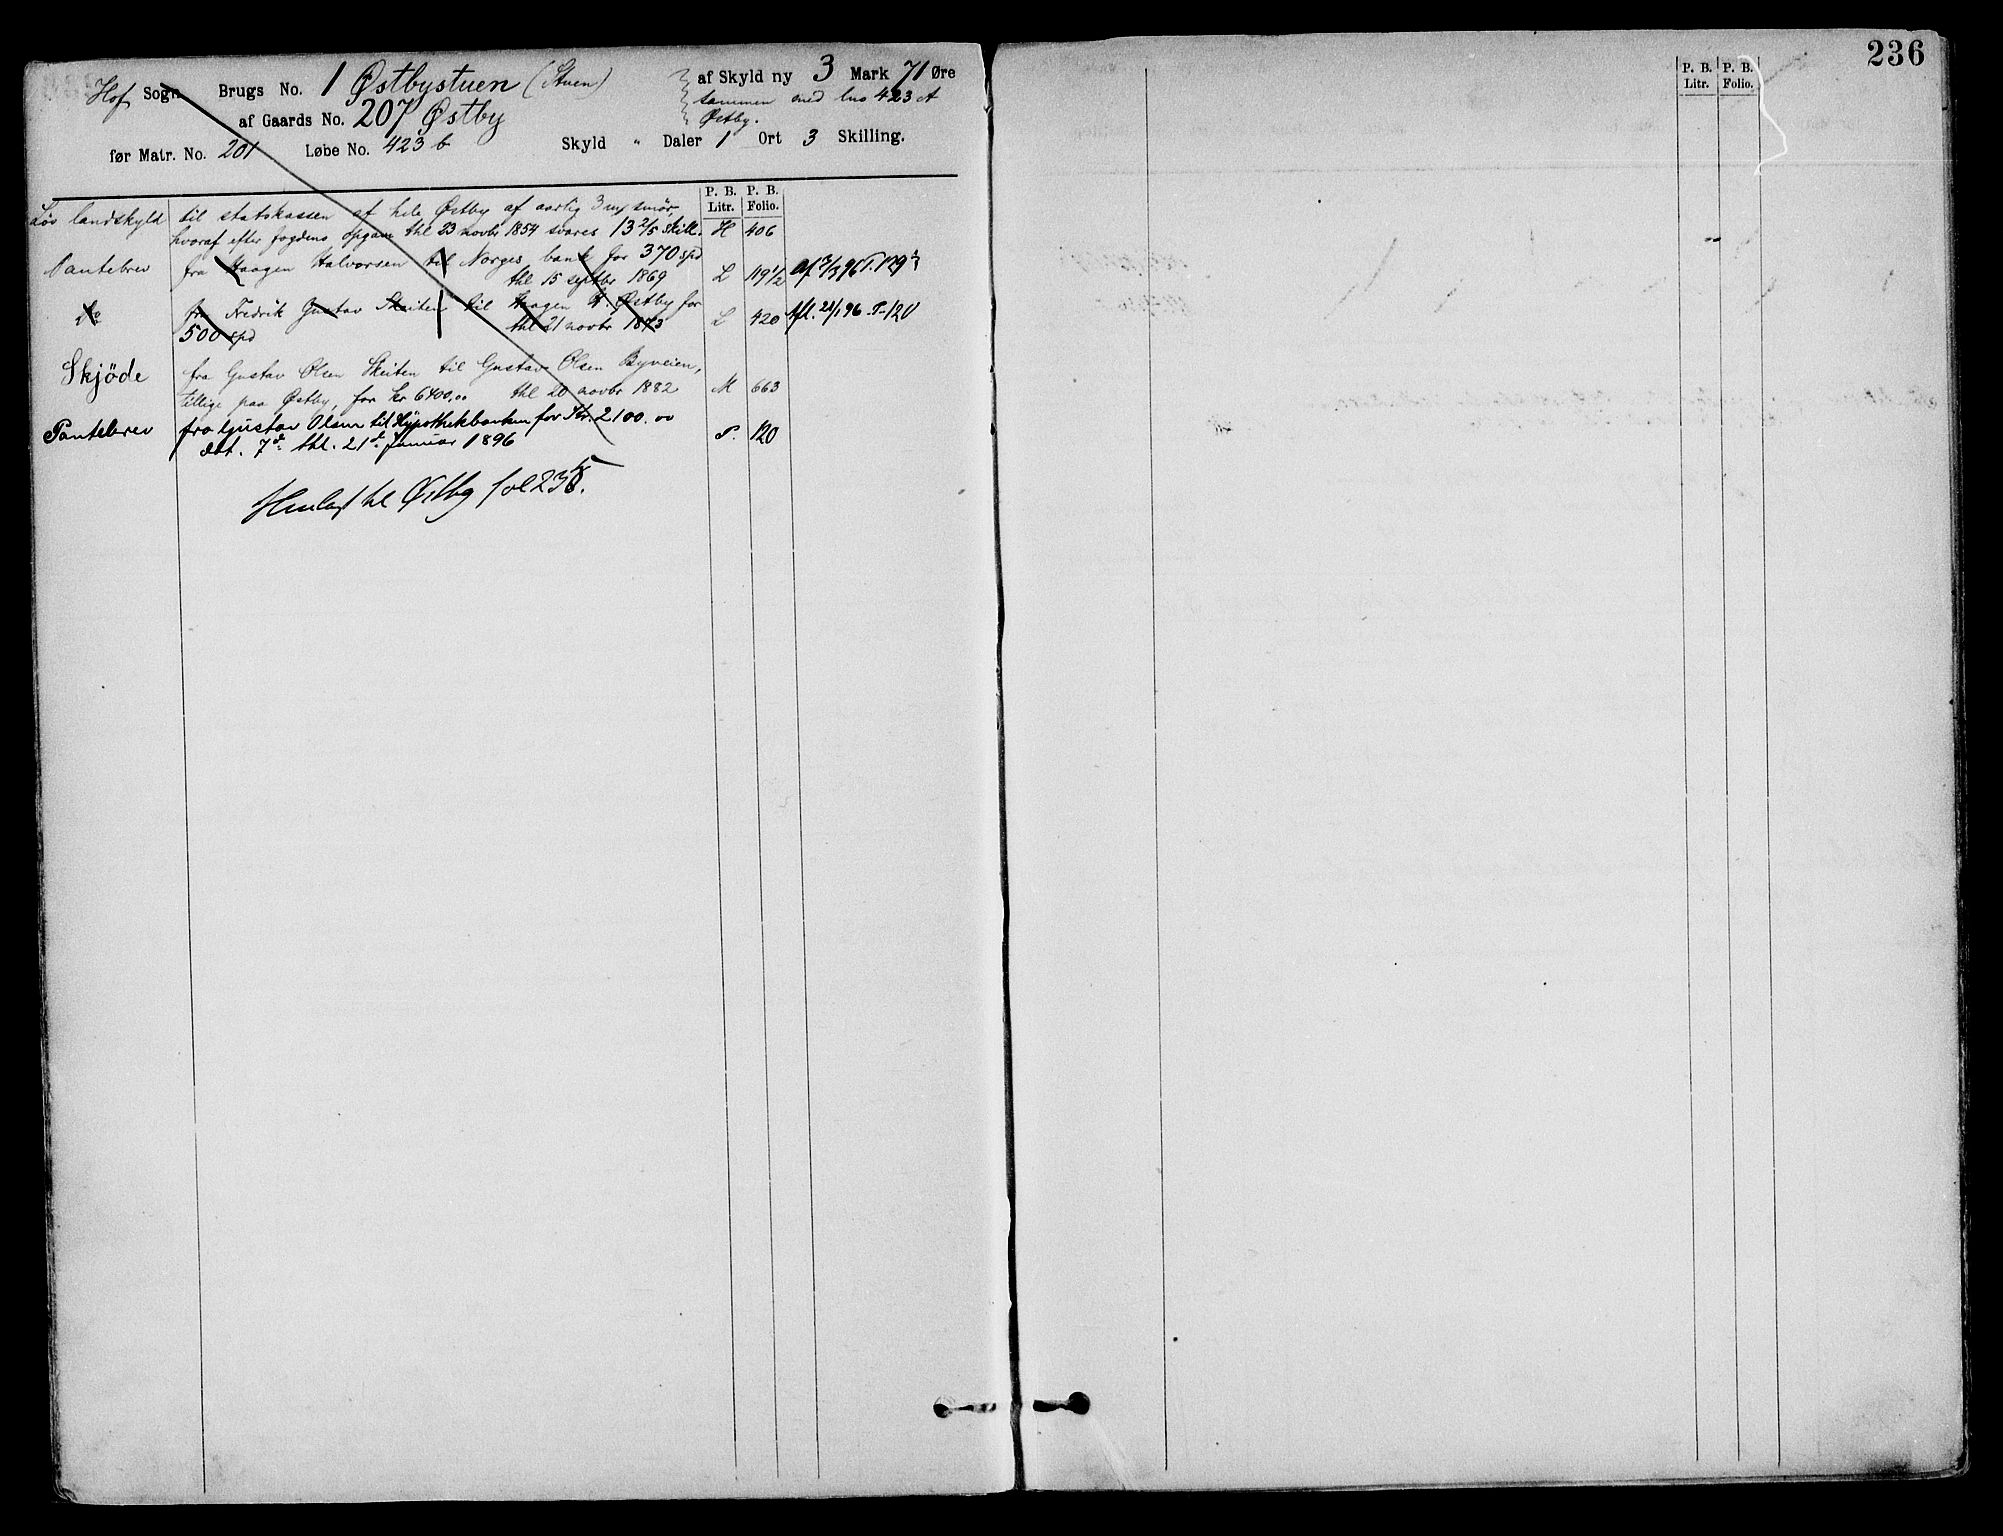 236
Hof Sogn Brugs No. 1 Østbystuen (Stuen) af Skyld ny 3 Mark 71 Øre
af Gaards No. 207 Østby sammen med lno 423 A
Østby.
før Matr. No. 201 Løbe No. 423 b Skyld " Daler 1 Ort 3 Skilling.
P. B. Litr. P. B. Folio.
P. B. Litr. P. B. Folio.
Løs landskyld til statskassen af hele Østby af aarlig 3 mk smör,
hvoraf efter fogdens opgave thl 23 novbr 1854 svares 13 2/5 Skill. H 406
Pantebrev fra Haagen Halvorsen til Norges bank for 370 spd
thl 15 septbr 1869 L 119 1/2
Do fra Fredrik Gustav Skeiten til Haagen H. Østby for
500 spd thl 21 novbr 1873 L 420 Afl. 21/1 96 P-120
Skjöde fra Gustav Olsen Skeiten til Gustav Olsen Byveien,
tillige paa Østby, for kr 6400,00 thl 20 novbr 1882 M 663
Pantebrev fra Gustav Olsen til Hypothekbanken for Kr. 2100.00
dat. 7de thl. 21de Januar 1896 P. 120
Henlagt til Østby fol 235.